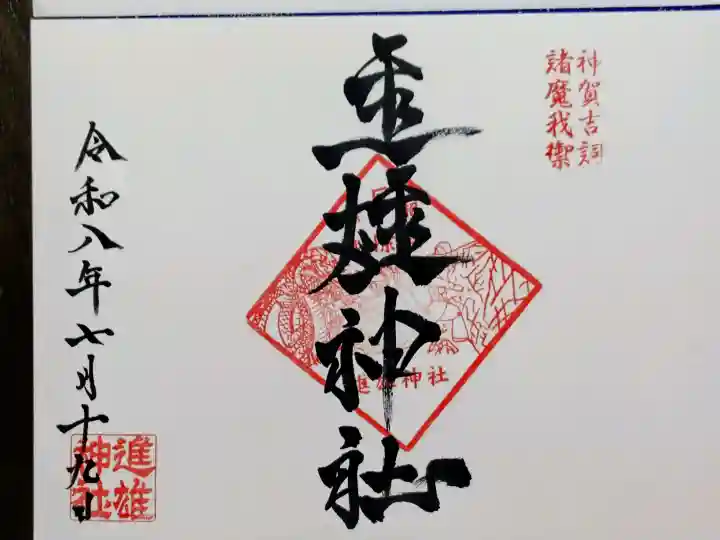 神賀吉詞
諸魔我禦
進雄神社
進雄神社
令和八年七月十九日
進雄
神社